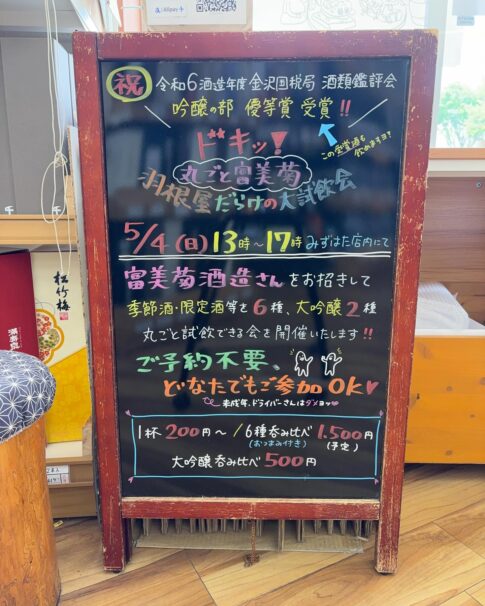 Alipay
祝 令和6酒造年度 金沢国税局 酒類鑑評会
吟醸の部 優等賞 受賞!!
この受賞酒も
飲めますヨ?
ドキッ!
丸ごと富美菊
羽根屋だらけの大試飲会
5/4(日)13時~17時 みずはた店内にて
富美菊酒造さんをお招きして
季節酒・限定酒等を6種、大吟醸2種
丸ごと試飲できる会を開催いたします!!
ご予約不要、
どなたでもご参加OK♥
未成年、ドライバーさんはダメョッ♥
1杯200円~/6種呑み比べ1,500円
(おつまみ付き) (予定)
大吟醸呑み比べ500円
松竹梅